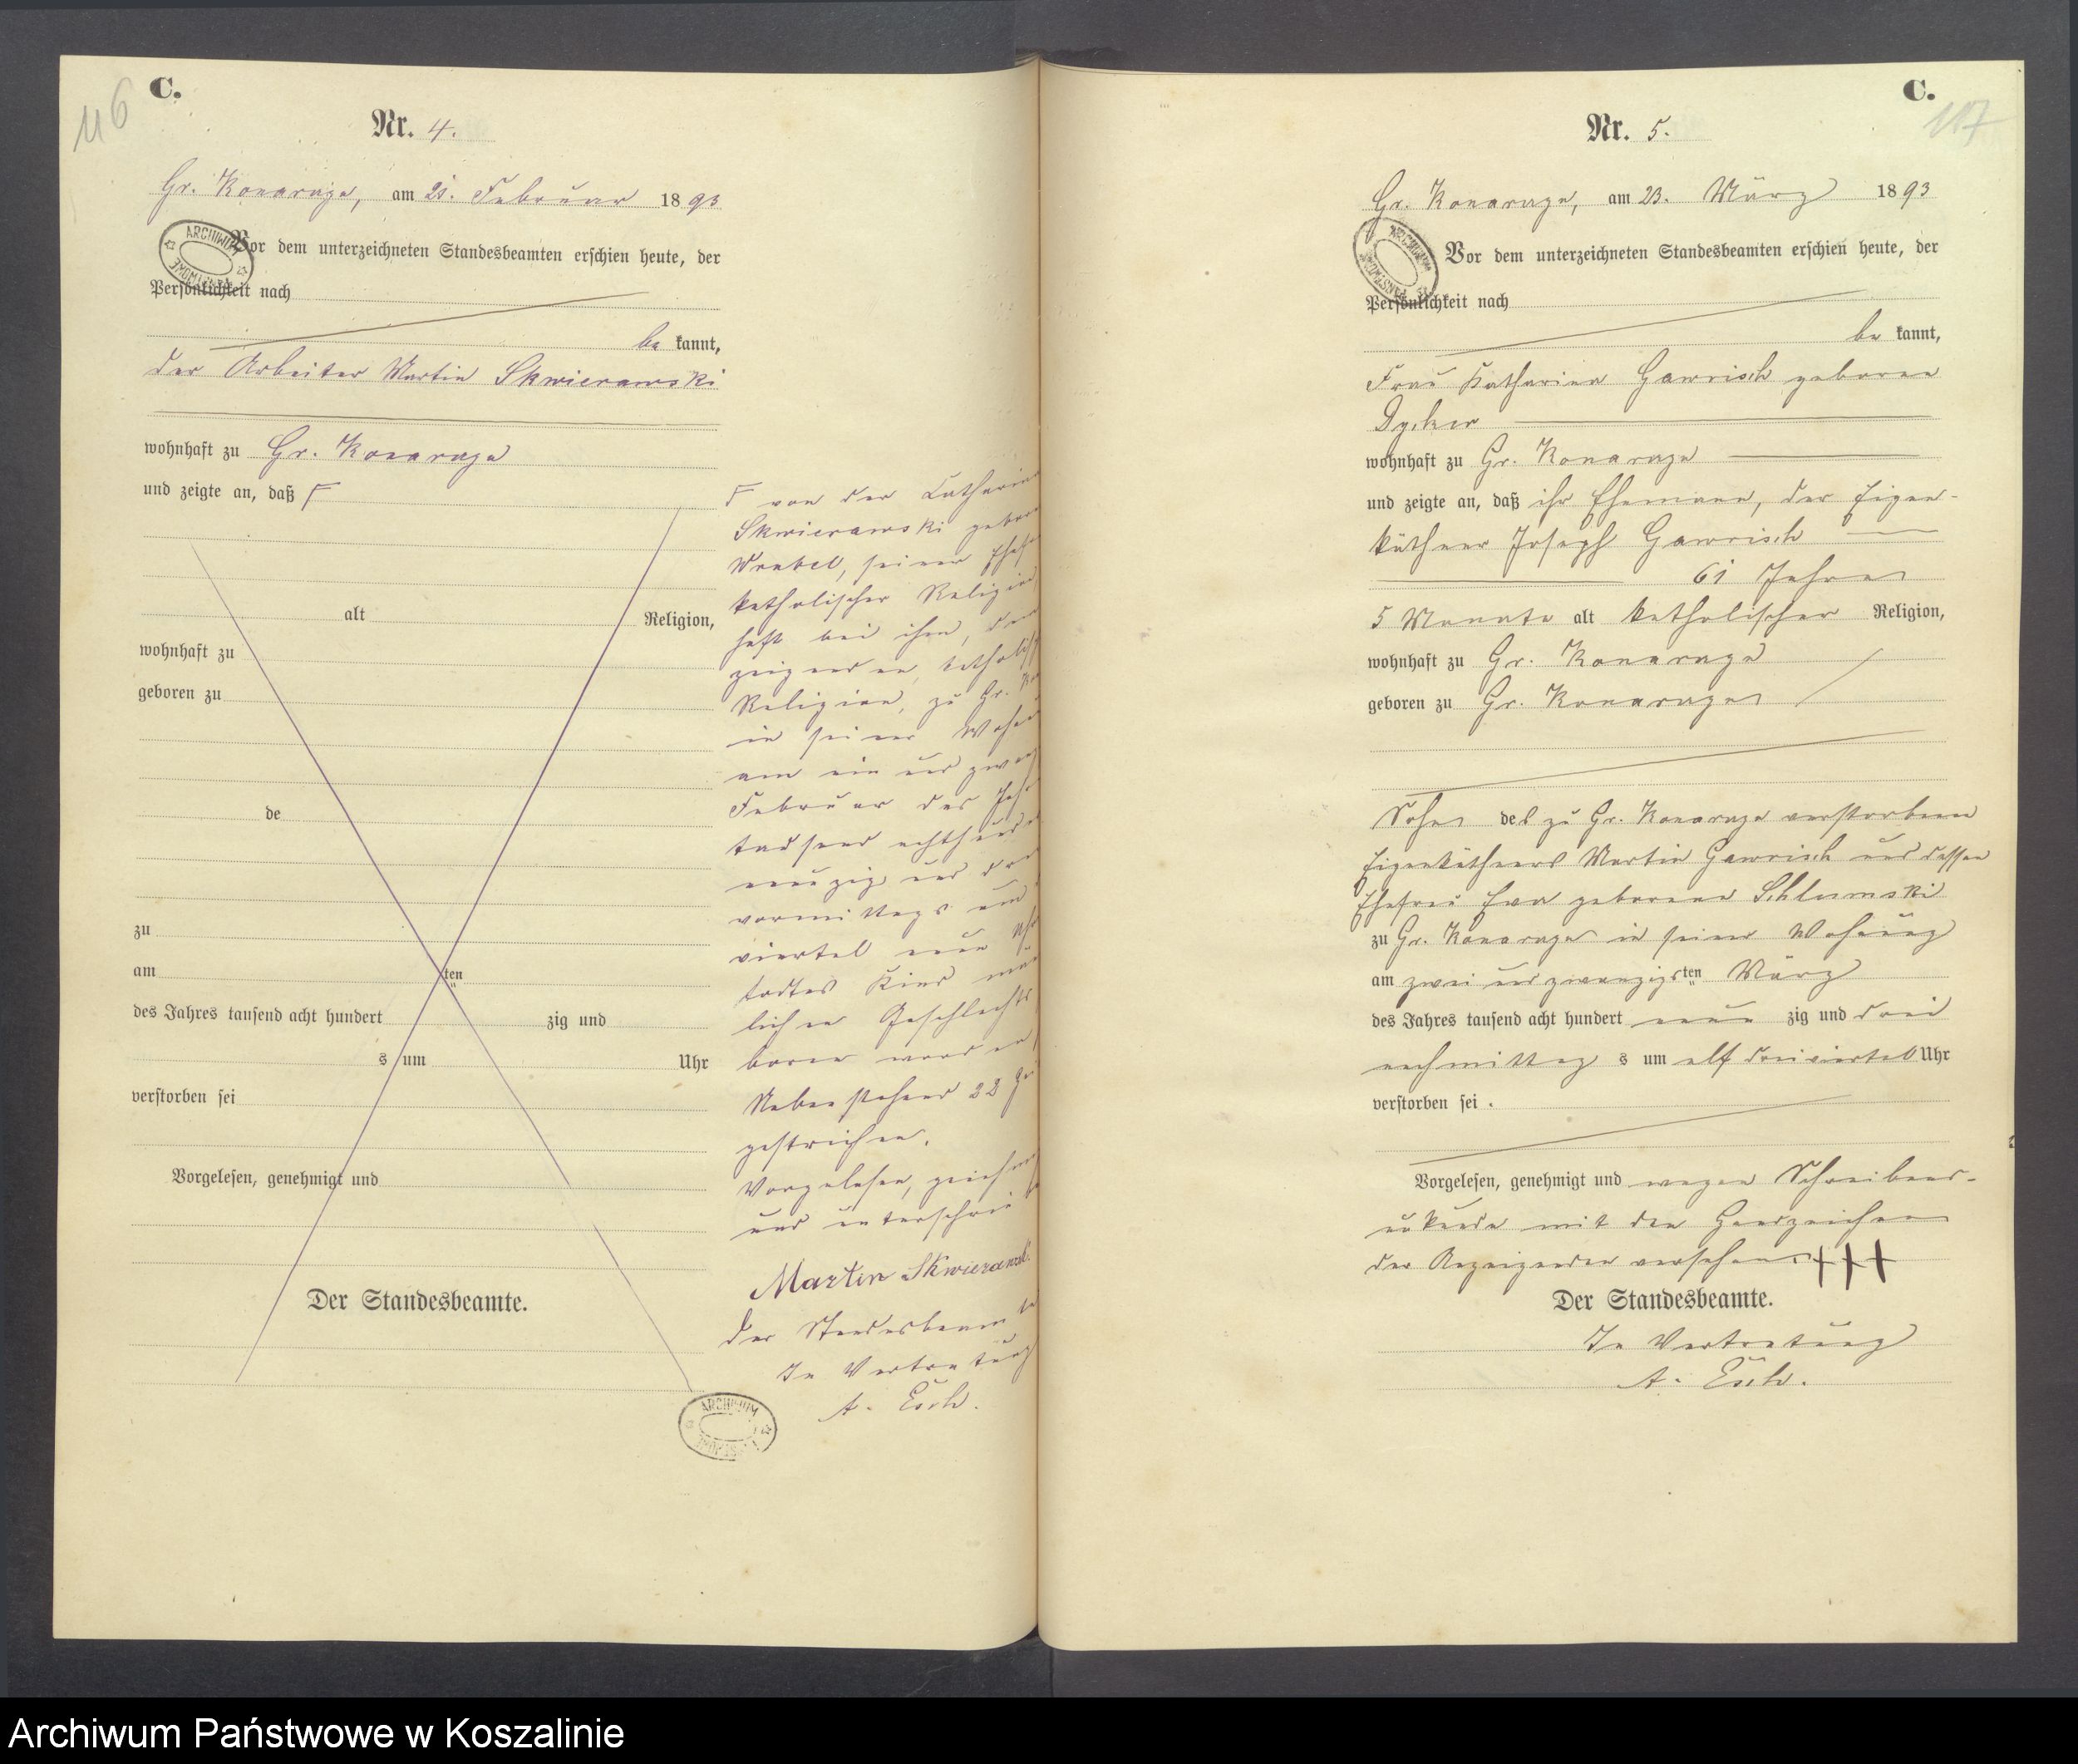 116
C.
Nr. 4.
Gr. Konarczyn, am 21. Februar 1893
ARCHIWUM
Vor dem unterzeichneten Standesbeamten erschien heute, der
Persönlichkeit nach
be kannt,
der Arbeiter Martin Skwierawski
wohnhaft zu Gr. Konarczyn
und zeigte an, daß Γ
alt Religion,
wohnhaft zu
geboren zu
de
zu
am ten
des Jahres tausend acht hundert zig und
s um Uhr
verstorben sei
Vorgelesen, genehmigt und
Der Standesbeamte.
Γ von der Catharina
Skwierawski gebore
Wrubel, seiner Ehefr
katholischer Religion
haft bei ihm, dem
zeigenden, katholisch
Religion, zu Gr. Ko
in seiner Wohnu
am ein und zwanz
Februar des Jahr
tausend achthunde
neunzig und drei
vormittags um
viertel neun Uhr
todtes Kind män
lichen Geschlechts
boren worden
Nebenstehend 22
gestrichen.
Vorgelesen, genehm
und unterschrieb
Martin Skwierawski
Der Standesbeamte
In Vertretung
A. Esch.
ARCHIWUM
C.
117
Nr. 5.
Gr. Konarczyn, am 23. März 1893
Vor dem unterzeichneten Standesbeamten erschien heute, der
Persönlichkeit nach
be kannt,
Frau Katharina Gawrisch geborene
wohnhaft zu Gr. Konarczyn
und zeigte an, daß ihr Ehemann, der Eigen-
käthner Joseph Gawrisch
61 Jahre
5 Monate alt katholischer Religion,
wohnhaft zu Gr. Konarczyn
geboren zu Gr. Konarczyn
Sohn des zu Gr. Konarczyn verstorbenen
Eigenkäthners Martin Gawrisch und dessen
Ehefrau Eva geborene Schlumski
zu Gr. Konarczyn in seiner Wohnung
am zwei und zwanzigsten März
des Jahres tausend acht hundert neun zig und drei
nachmittag s um elf dreiviertel Uhr
verstorben sei.
Vorgelesen, genehmigt und wegen Schreibens-
unkunde mit den Handzeichen
der Anzeigenden versehen. +++
Der Standesbeamte.
In Vertretung
A. Esch.
Archiwum Państwowe w Koszalinie